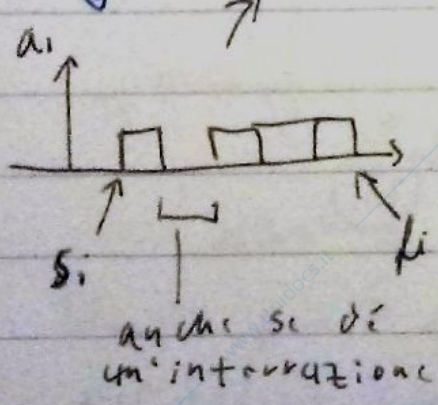 a₁
sᵢ
fᵢ
anche se di
un'interruzione